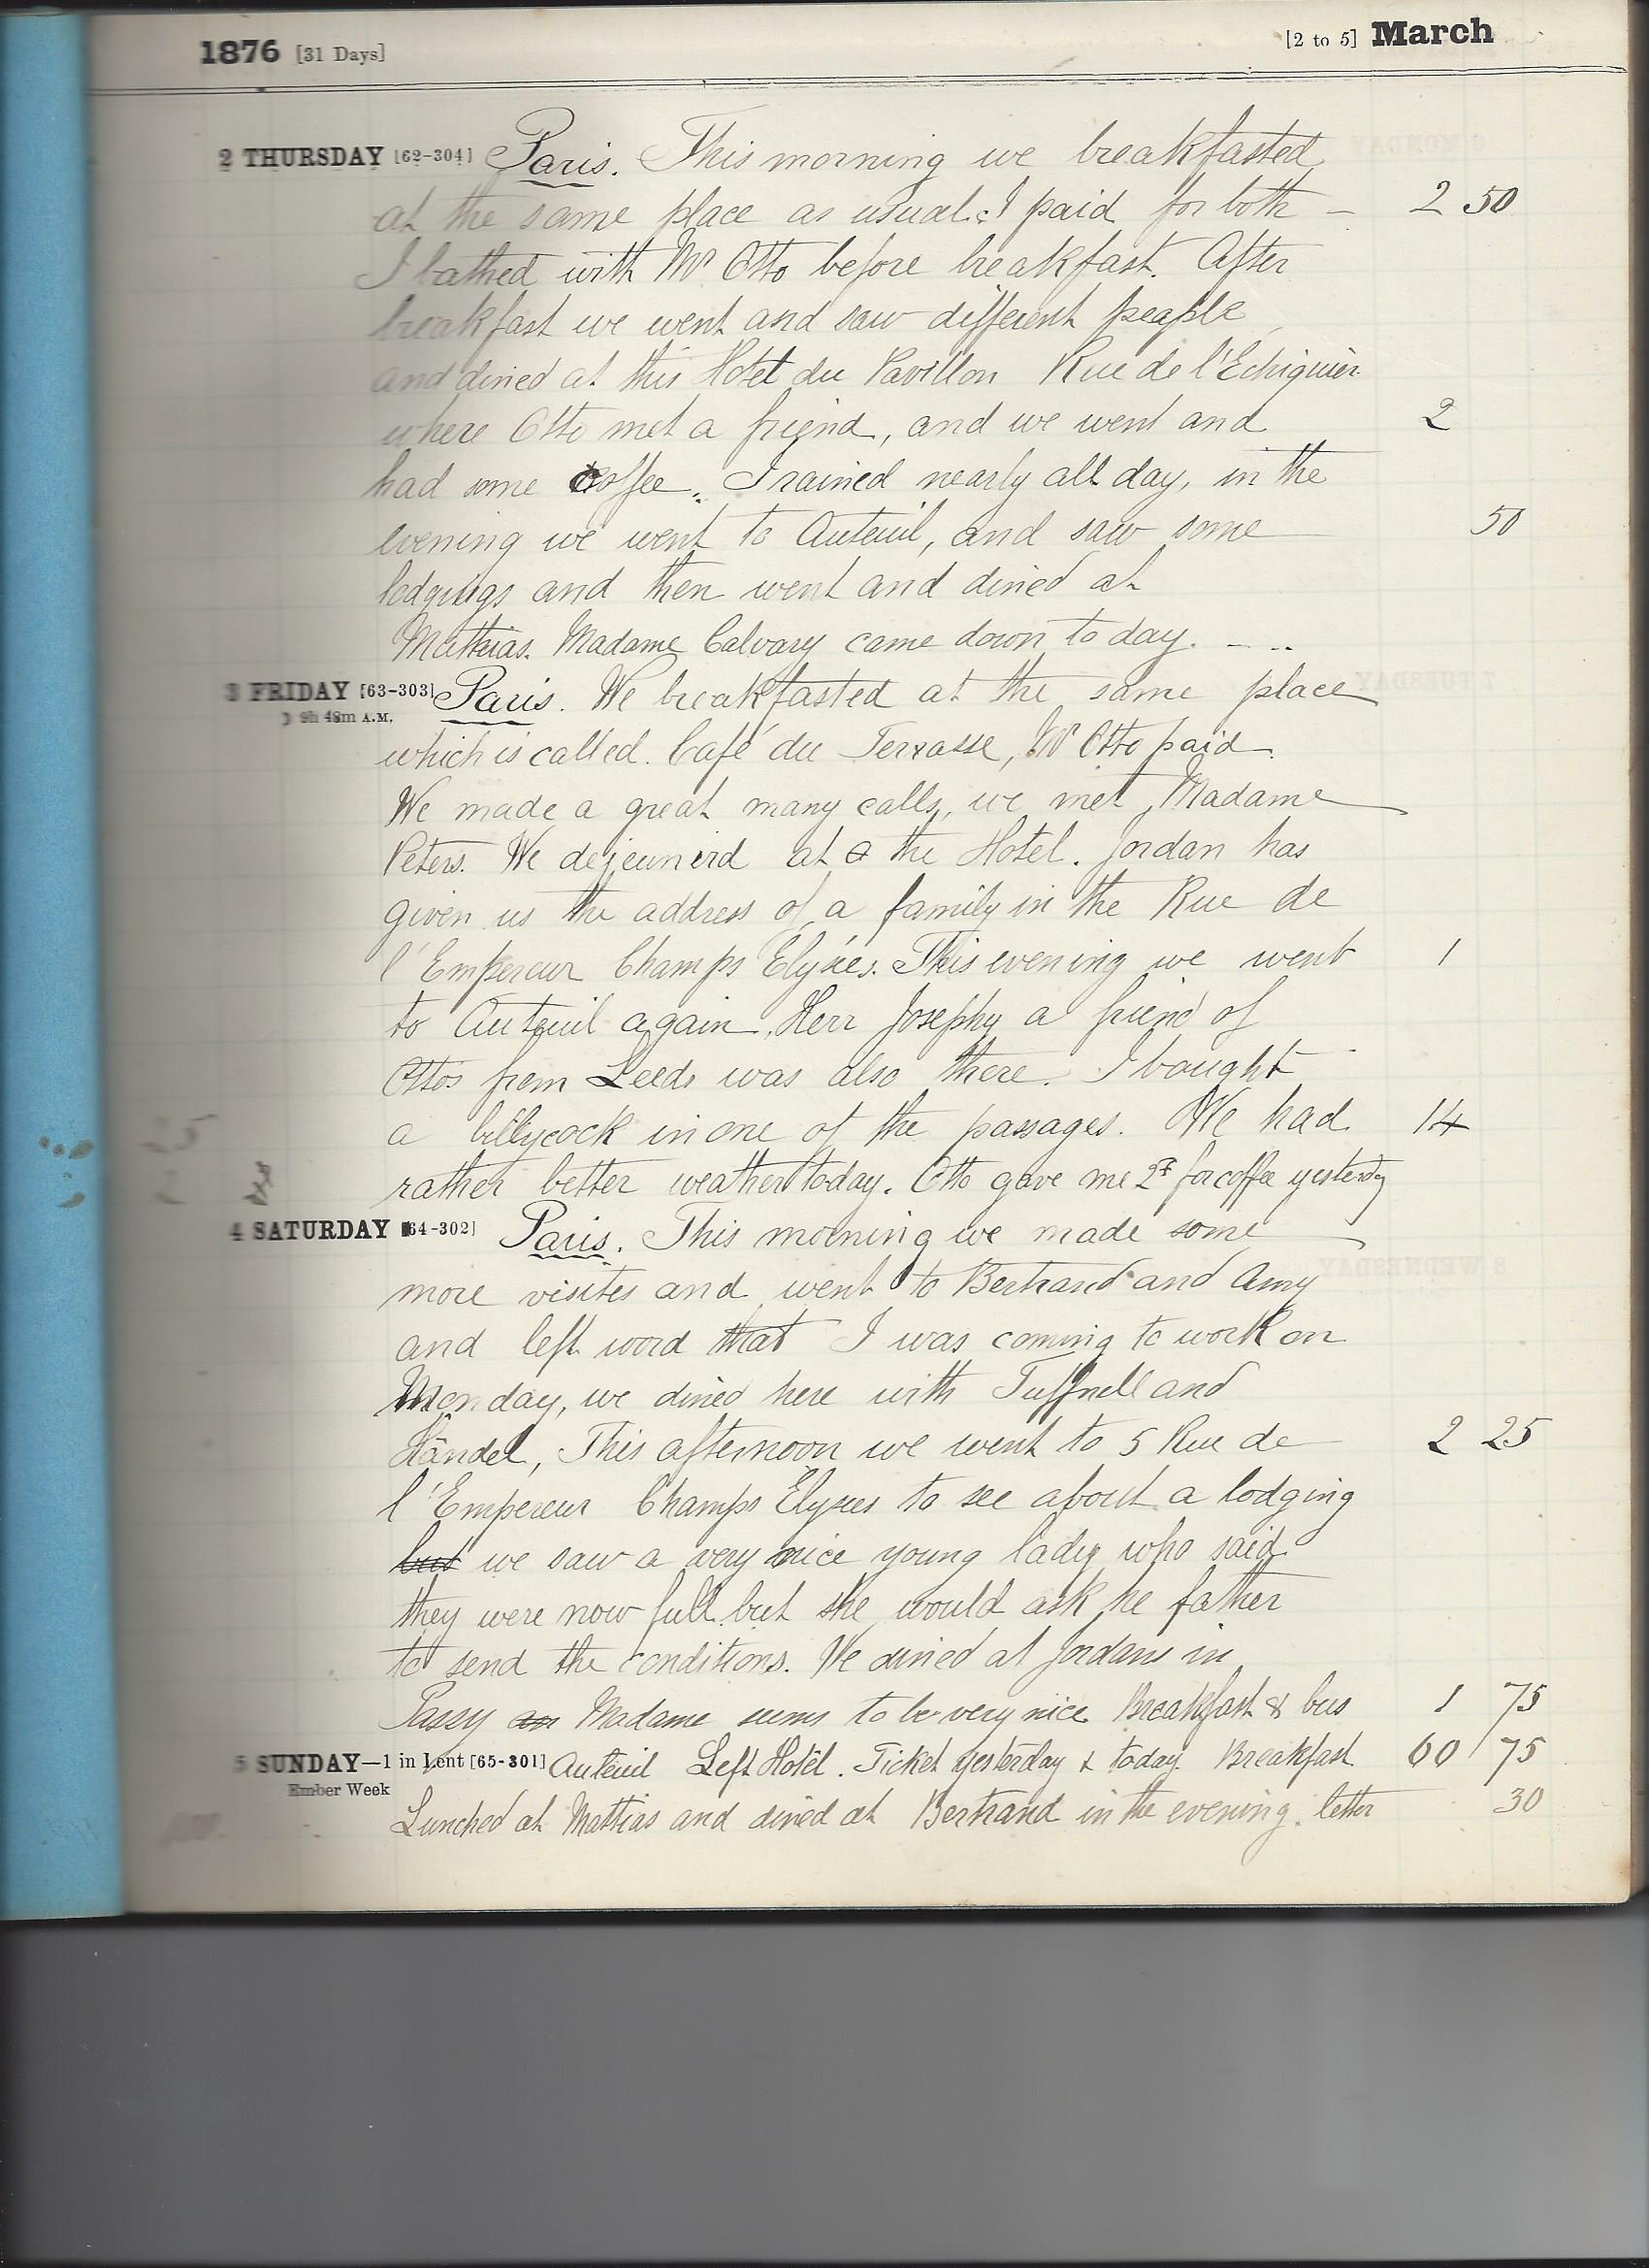 1876 [31 Days] [2 to 5] March
2 THURSDAY [62-304] Paris. This morning we breakfasted
at the same place as usual. I paid for both – 2 50
I bathed with Mr Otto before breakfast. After
breakfast we went and saw different people
and dined at this Hotel du Pavillon Rue de l'Echiquier
where Otto met a friend, and we went and 2
had some coffee. I rained nearly all day, in the
evening we went to Auteuil, and saw some 50
lodgings and then went and dined at
Mathias. Madame Calvary came down to day. – ..
3 FRIDAY [63-303] Paris. We breakfasted at the same place
9h 48m A.M.
which is called. Café du Terrasse, Mr Otto paid.
We made a great many calls, we met Madame
Peters. We dejeunerd at the Hotel. Jordan has
given us the address of a family in the Rue de
l'Empereur Champs Elysées. This evening we went 1
to Auteuil again. Herr Josephy a friend of
Ottos from Leeds was also there. I bought
a billycock in one of the passages. We had 14
rather better weather today. Otto gave me 2F for coffee yesterday
4 SATURDAY [64-302] Paris. This morning we made some
more visites and went to Bertrand and Amy
and left word that I was coming to work on
Monday, we dined here with Tuffnell and
Händel, This afternoon we went to 5 Rue de 2 25
l'Empereur Champs Elysees to see about a lodging
but we saw a very nice young lady who said
they were now full but she would ask he father
to send the conditions. We dined at Jordans in
Passy an Madame seems to be very nice Breakfast & bus 1 75
5 SUNDAY—1 in Lent [65-301] Auteuil Left Hotel. Ticket yesterday & today. Breakfast 60 75
Ember Week
Lunched at Mattias and dined at Bertrand in the evening. letter 30